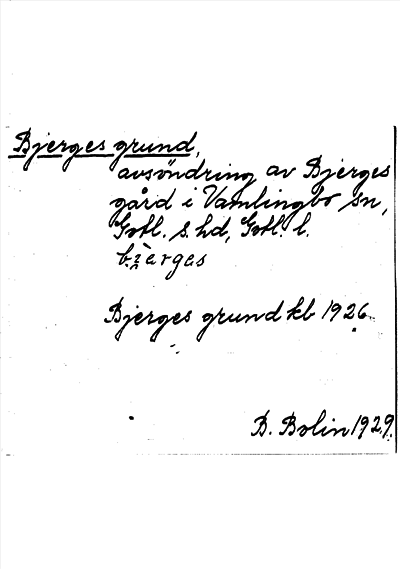 Bjerges grund,
avsöndring av Bjerges
gård i Vamlingbo sn,
Gotl. s. hd, Gotl. l.
Bjerges grund kb 1926
B. Bolin 1929.